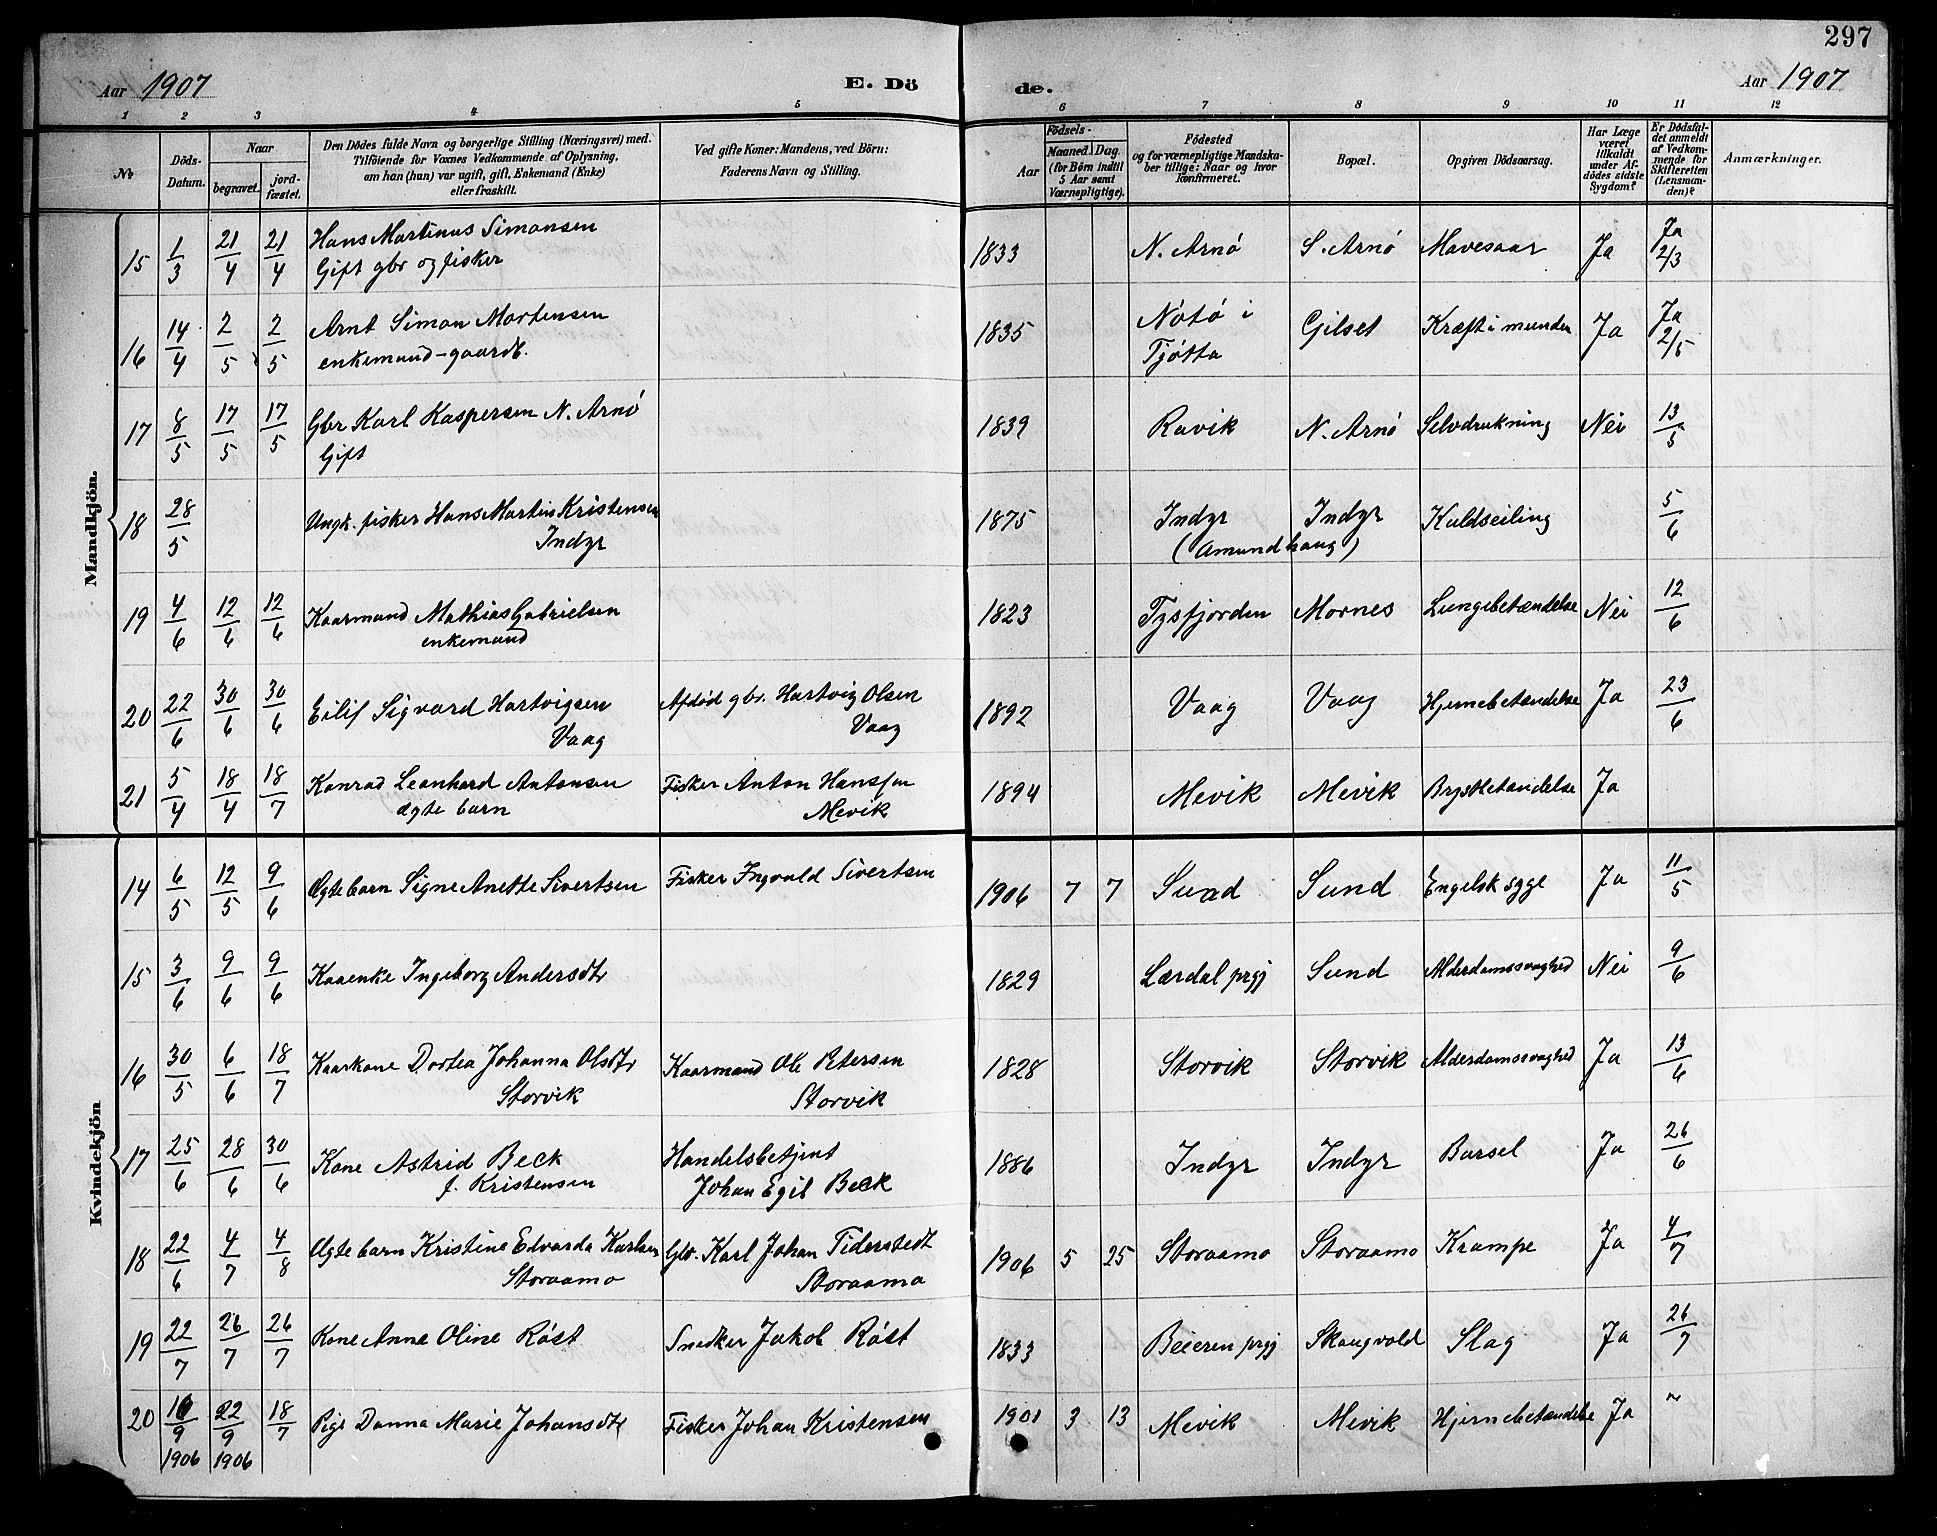 297
Aar 1907 E. Dö de. Aar 1907
1 2 3 4 5 6 7 8 9 10 11 12
№
Döds-Datum.
Naar
begravet.
jord-fæstet.
Den Dödes fulde Navn og borgerlige Stilling (Næringsvei) med.
Tilföiende for Voxnes Vedkommende af Oplysning,
om han (hun) var ugift, gift, Enkemand (Enke)
eller fraskilt.
Ved gifte Koner: Mandens, ved Börn:
Faderens Navn og Stilling.
Födsels-
Aar
Maaned. Dag.
(for Börn indtil
5 Aar samt
Værnepligtige).
Födested
og for værnepligtige Mandska-
ber tillige: Naar og hvor
konfirmeret.
Bopæl.
Opgiven Dödsaarsag.
Har Læge
været
tilkaldt
under Af-
dödes sidste
Sygdom?
Er Dödsfal-
det anmeldt
af Vedkom-
mende for
Skifteretten
(Lensman-
den)?
Anmærkninger.
Mandkjön.
15 1/3 21/4 21/4 Hans Martinus Simonsen 1833 N. Arnö S. Arnö Mavesaar Ja Ja 2/3
Gift gbr og fisker
16 14/4 2/5 2/5 Arnt Simon Mortensen 1835 Nötö i Gilset Kræft i munden Ja Ja 2/5
enkemand - gaardb. Tjötta
17 8/5 17/5 17/5 Gbr Karl Kaspersen N. Arnö 1839 Ravik N. Arnö Selvdrukning Nei 13/5
Gift
18 28/5 Ungk. fisker Hans Martin Kristensen 1875 Indyr Indyr Kuldseiling 5/6
Indyr (Amundhaug)
19 4/6 12/6 12/6 Kaarmand Mathias Gabrielsen 1823 Tysfjorden Mornes Lungebetændelse Nei 12/6
enkemand
20 22/6 30/6 30/6 Eilif Sigvard Hartvigsen Afdöd gbr. Hartvig Olsen 1892 Vaag Vaag Hjernebetændelse Ja 23/6
Vaag Vaag
21 5/4 18/4 18/7 Konrad Leonhard Antonsen Fisker Anton Hansen 1894 Mevik Mevik Brystbetændelse Ja
ægte barn Mevik
Kvindekjön
14 6/5 12/5 9/6 Ægte barn Signe Anette Sivertsen Fisker Ingvald Sivertsen 1906 7 7 Sund Sund Engelsk syge Ja 11/5
15 3/6 9/6 9/6 Kaaenke Ingeborg Andersdtr 1829 Lærdal prgj Sund Alderdomssvaghed Nei 9/6
16 30/5 6/6 18/7 Kaarkone Dortea Johanna Olsdtr Kaarmand Ole Petersen 1828 Storvik Storvik Alderdomssvaghed Ja 13/6
Storvik Storvik
17 25/6 28/6 30/6 Kone Astrid Beck Handelsbetjent 1886 Indyr Indyr Barsel Ja 26/6
f. Kristensen Johan Egil Beck
18 22/6 4/7 4/8 Ægte barn Kristine Edvarda Karlsen Gbr. Karl Johan Tiderstedt 1906 5 25 Storaamo Storaamo Krampe Ja 4/7
Storaamo Storaamo
19 22/7 26/7 26/7 Kone Anne Oline Röst Snedker Jakob Röst 1833 Beieren prgj Skaugvold Slag Ja 26/7
20 10/9 22/9 18/7 Pige Danna Marie Johansdtr Fisker Johan Kristensen 1901 3 13 Mevik Mevik Hjernebetændelse Ja ~
1906 1906